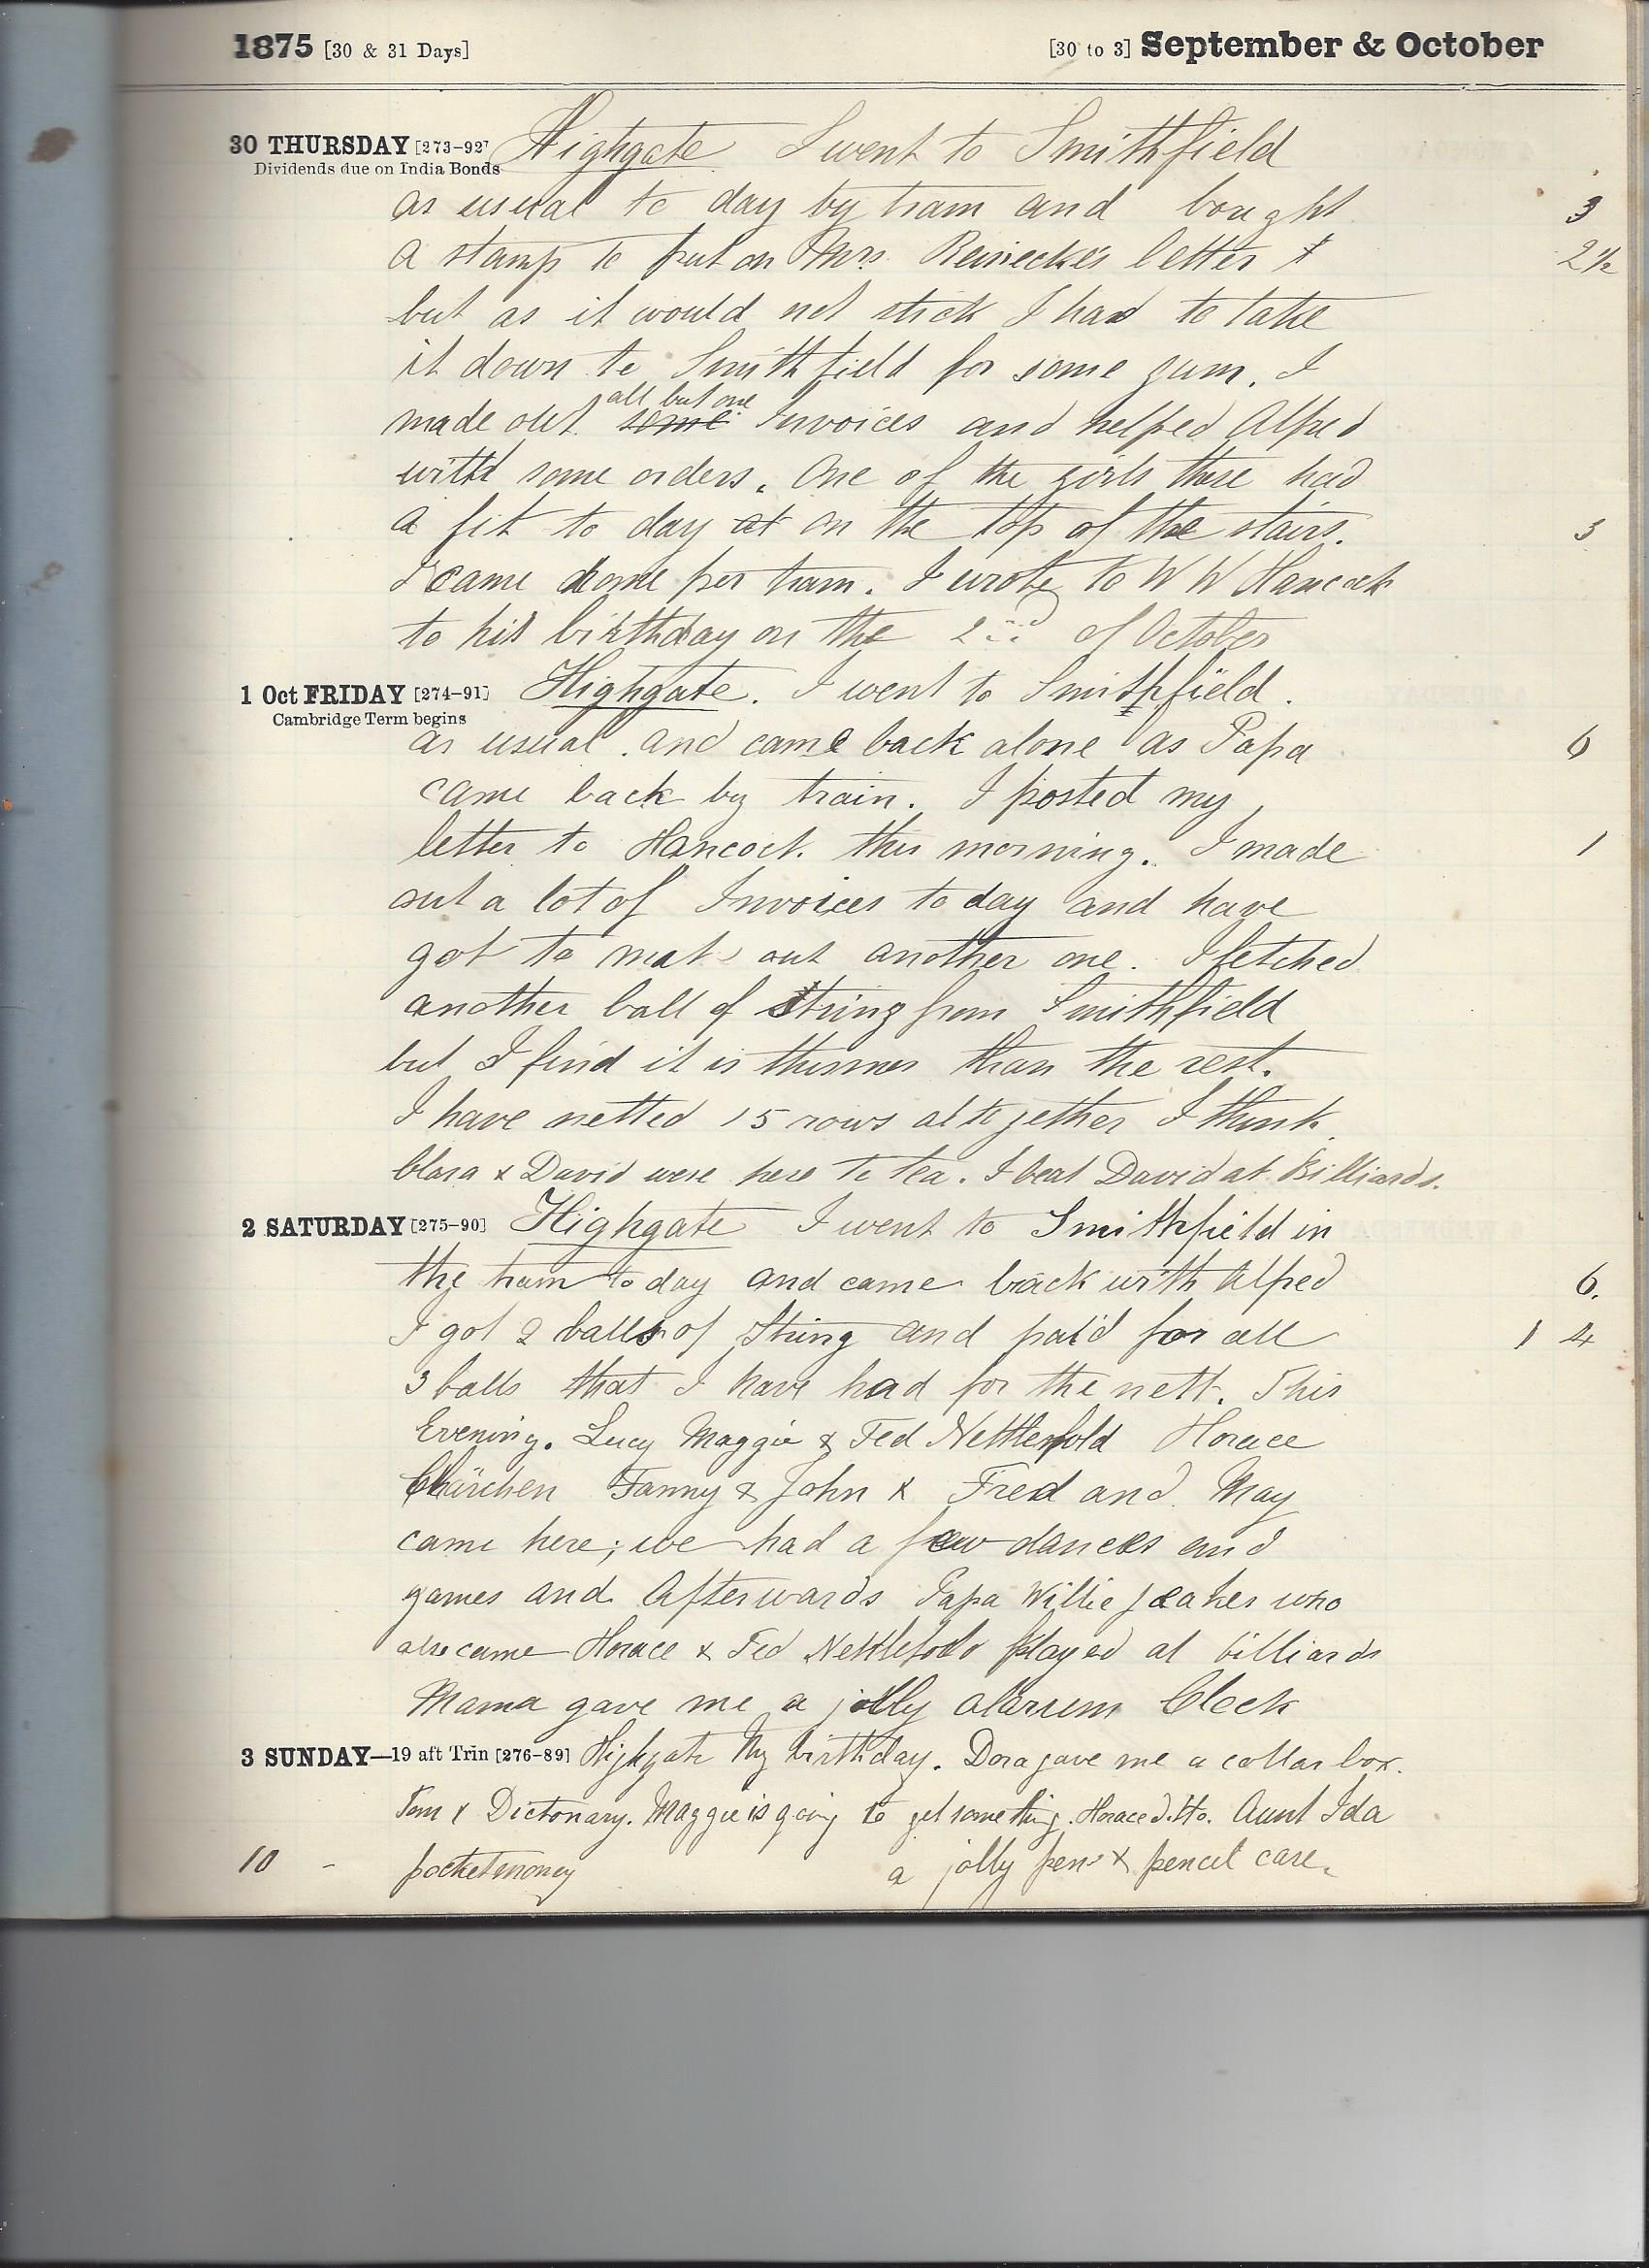 1875 [30 & 31 Days] [30 to 3] September & October
30 THURSDAY [273-92] Highgate I went to Smithfield
Dividends due on India Bonds
as usual to day by tram and bought 3
a stamp to put on Mrs. Reinecke's letter & 2½
but as it would not stick I had to take
it down to Smithfield for some gum. I
all but one
made out some Invoices and helped Alfred
with some orders. One of the girls there had
a fit to day at on the top of the stairs. 3
I came home per tram. I wrote to W W Hancock
to his birthday on the 2nd of October
1 Oct FRIDAY [274-91] Highgate. I went to Smithfield.
Cambridge Term begins
as usual. and came back alone as Papa 6
came back by train. I posted my
letter to Hancock this morning. I made 1
out a lot of Invoices to day and have
got to make out another one. I fetched
another ball of string from Smithfield
but I find it is thinner than the rest.
I have netted 15 rows altogether I think.
Clara & David were here to tea. I beat David at Billiards.
2 SATURDAY [275-90] Highgate I went to Smithfield in
the tram to day and came back with Alfred 6.
I got 2 balls of String and paid for all 1 4
3 balls that I have had for the nett. This
Evening. Lucy Maggie & Ted Nettlefold Horace
Clärchen Fanny & John & Fred and May
came here; we had a few dances and
games and Afterwards Papa Willie Jeakes who
also came Horace & Ted Nettlefold played at billiards
Mama gave me a jolly alarum Clock
3 SUNDAY—19 aft Trin [276-89] Highgate My birthday. Dora gave me a collar box.
Tom & Dictonary. Maggie is going to get something. Horace Ditto. Aunt Ida
10 - pocketmoney a jolly pen & pencil case.